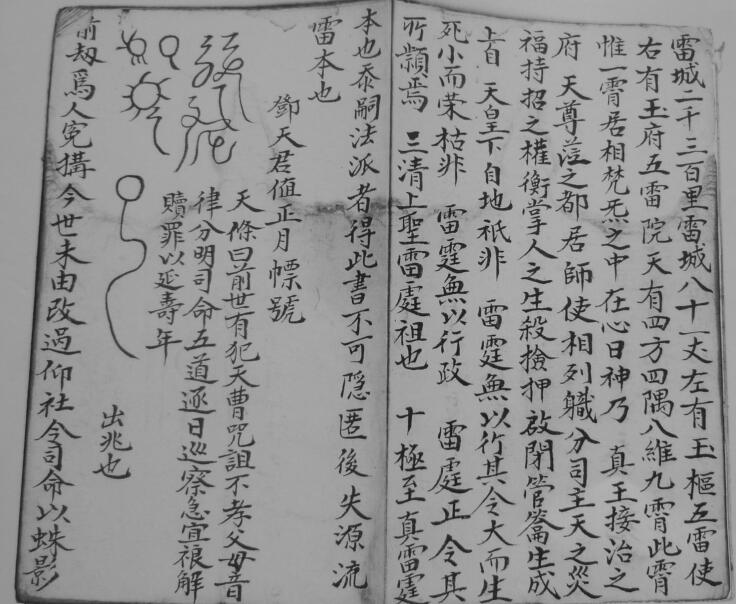 雷城二千三百里雷城八十一丈左有玉樞五雷使
右有玉府五雷院天有四方四隅八維九霄此霄
惟一霄居相梵炁之中在心曰神乃 真王接治之
府 天尊蒞之都居師使相列職分司主天之災
福持招之權衡掌人之生殺檢押啟閉管籥生成
上自 天皇下自地祇非 雷霆無以行其令大而生
死小而荣枯非 雷霆無以行政 雷霆正令其
所顈焉 三清上聖雷霆祖也 十極至真雷霆
本也忝嗣法派者得此書不可隐匿後失源流
雷本也
鄧天君值正月幖號
天條曰前世有犯天曹咒詛不孝父母音
律分明司命五道逐日巡察急宜禳解
贖罪以延壽年
出兆也
前劫爲人冤搆今世未由改過仰社令司命以蛛影